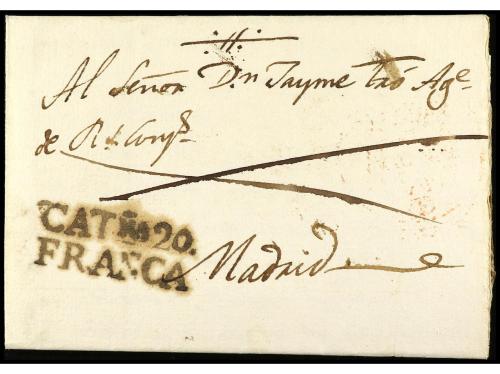 Al Señor Dn Jayme Age
de Rs
CATÑA 20.
FRANCA
Madrid